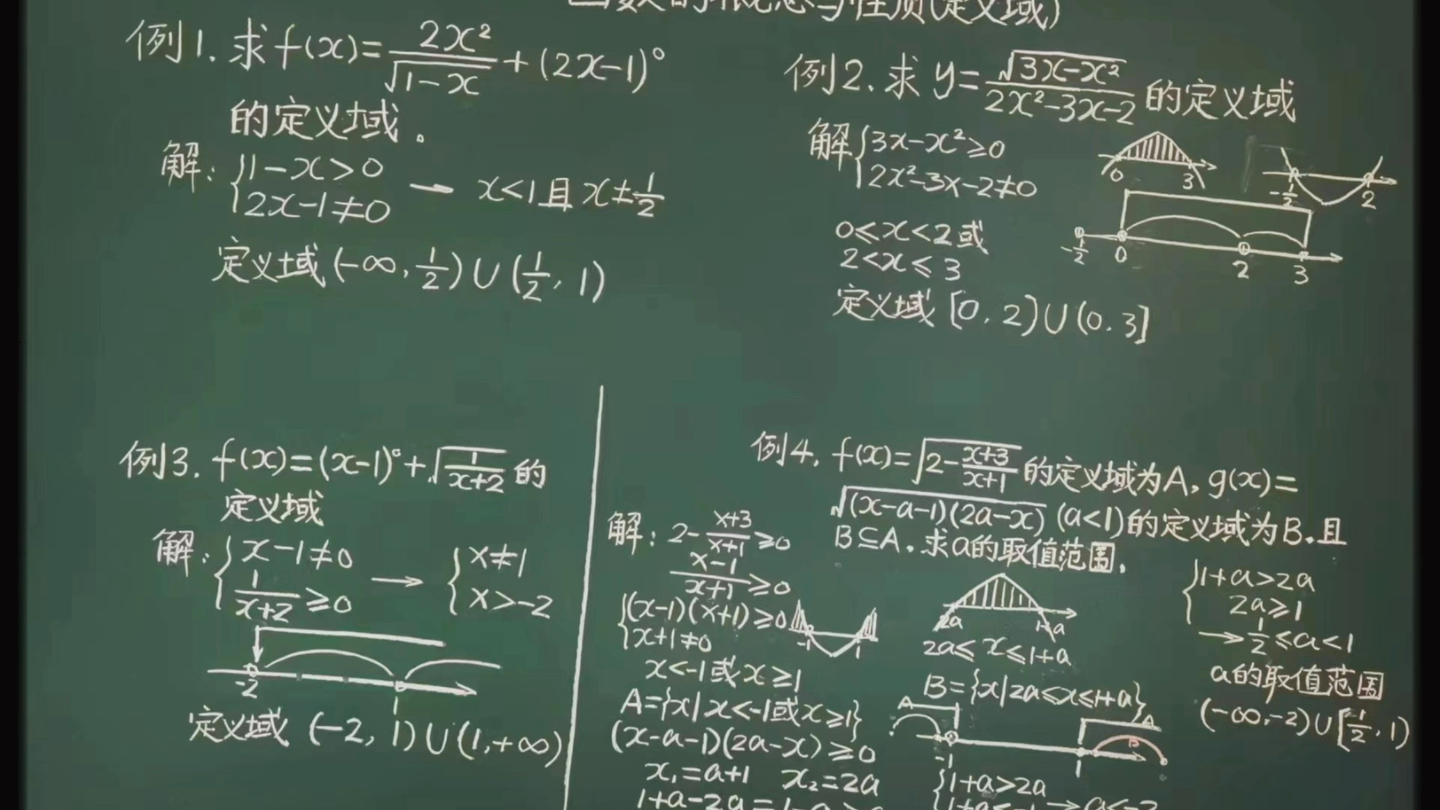 函数的概念与性质(定义域)
例1. 求 f(x)=\frac{2x²}{\sqrt{1-x}}+(2x-1)°
的定义域。
解: {1-x>0
{2x-1≠0 → x<1且 x≠\frac{1}{2}
定义域(-∞, \frac{1}{2})∪(\frac{1}{2}, 1)
例2. 求 y=\frac{\sqrt{3x-x²}}{2x²-3x-2} 的定义域
解{3x-x²≥0
{2x²-3x-2≠0
0 3
-\frac{1}{2} 2
0≤x<2或
2<x≤3
-\frac{1}{2} 0 2 3
定义域 [0, 2)∪(0, 3]
例3. f(x)=(x-1)°+\sqrt{\frac{1}{x+2}} 的
定义域
解: {x-1≠0 → {x≠1
{\frac{1}{x+2}≥0 {x>-2
-2 1
定义域 (-2, 1)∪(1,+∞)
例4. f(x)=\sqrt{2-\frac{x+3}{x+1}} 的定义域为A, g(x)=
\sqrt{(x-a-1)(2a-x)} (a<1)的定义域为B.且
B⊆A. 求a的取值范围.
解: 2-\frac{x+3}{x+1}≥0
\frac{x-1}{x+1}≥0
{(x-1)(x+1)≥0
{x+1≠0
-1 1
x<-1或x≥1
A={x|x<-1或x≥1}
(x-a-1)(2a-x)≥0
x₁=a+1 x₂=2a
1+a-2a=1-a>0
2a 1+a
2a≤x≤1+a
B={x|2a≤x≤1+a}
A A
B
-1 1
{1+a>2a
{1+a<-1 → a<-2
{1+a>2a
2a≥1
→ \frac{1}{2}≤a<1
a的取值范围
(-∞,-2)∪[\frac{1}{2}, 1)